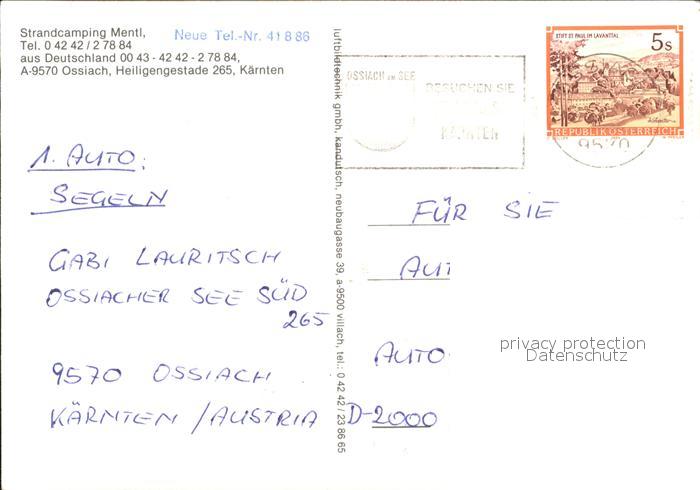 Strandcamping Mentl,
Tel. 0 42 42 / 2 78 84
aus Deutschland 00 43 - 42 42 - 2 78 84,
A-9570 Ossiach, Heiligengestade 265, Kärnten
Neue Tel.-Nr. 41 8 86
1. AUTO:
SEGELN
GABI LAURITSCH
OSSIACHER SEE SÜD
265
9570 OSSIACH
KÄRNTEN / AUSTRIA
luftbildtechnik gmbh, kandutsch, neubaugasse 39, a-9500 villach, tel.: 0 42 42 / 23 86 65
OSSIACH AM SEE
BESUCHEN SIE
KÄRNTEN
STIFT ST. PAUL IM LAVANTTAL
5s
REPUBLIK ÖSTERREICH
9570
FÜR SIE
AUT
AUTO
D-2000
privacy protection
Datenschutz